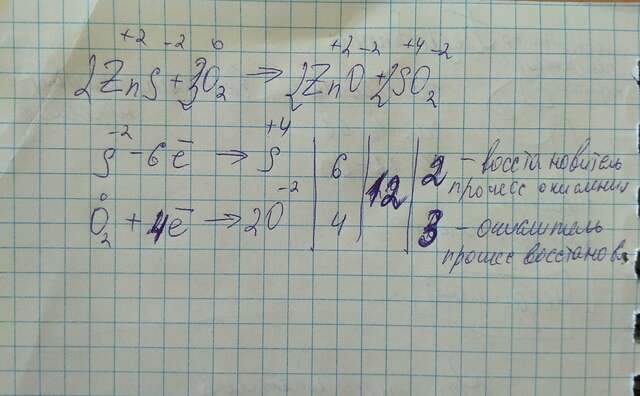 +2 -2 0 +2 -2 +4 -2
2ZnS + 3O₂ → 2ZnO + 2SO₂
-2 +4
S - 6ē → S | 6 | 12 | 2 - восстановитель
процесс окисления
0 -2
O₂ + 4ē → 2O | 4 | 3 - окислитель
процесс восстановл